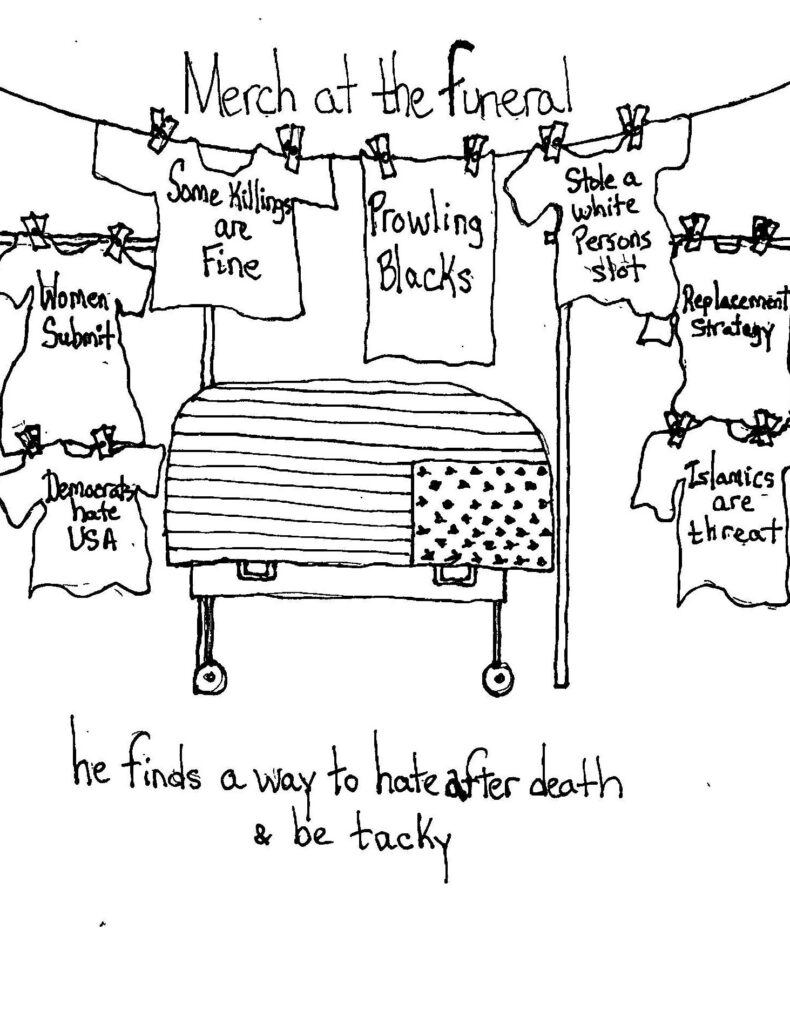 Merch at the funeral
Some Killings
are
Fine
Prowling
Blacks
Stole a
white
Persons
slot
Women
Submit
Replacement
Strategy
Democrats
hate
USA
Islamics
are
threat
he finds a way to hate after death
& be tacky